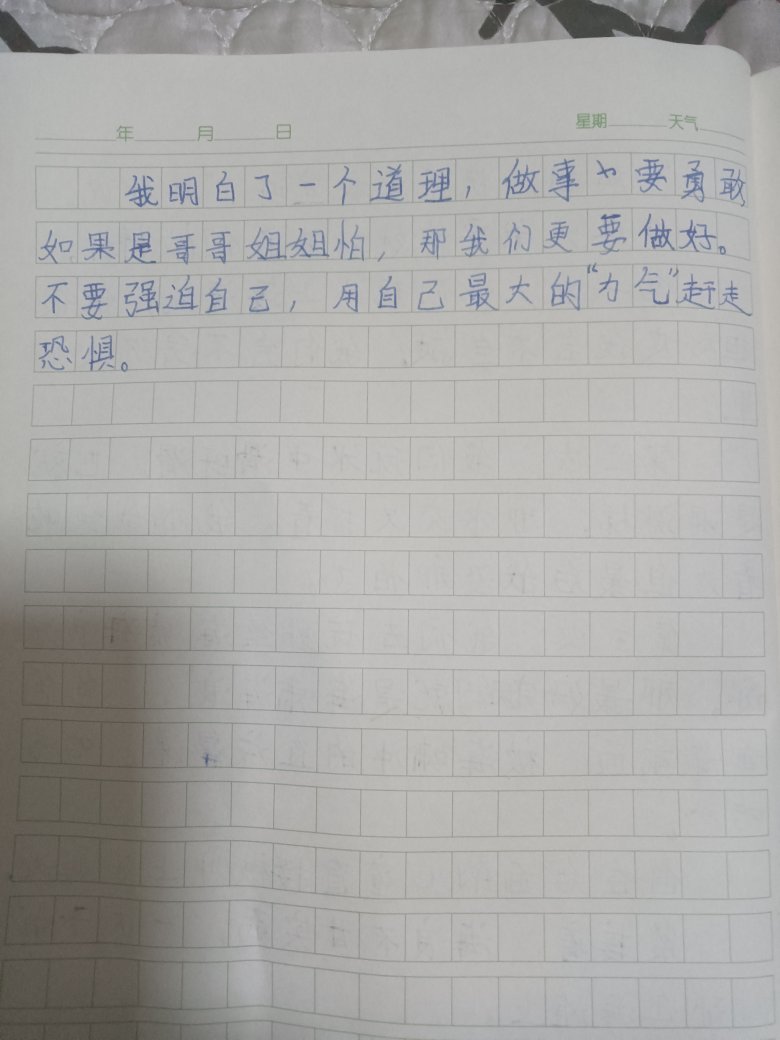 年 月 日 星期 天气
我明白了一个道理，做事要勇敢
如果是哥哥姐姐怕，那我们更要做好。
不要强迫自己，用自己最大的“力气”赶走
恐惧。